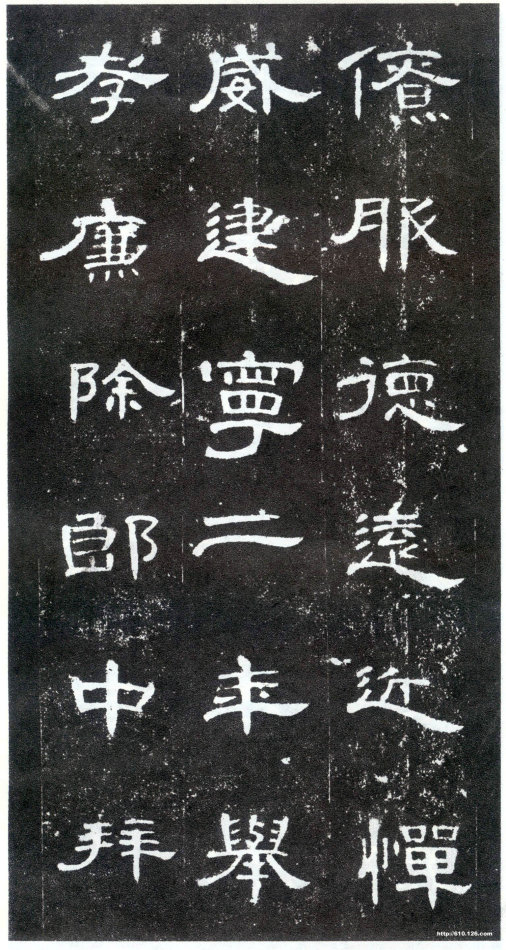 僚服德遠近憚
威建寧二年舉
孝廉除郎中拜
http://610.126.com